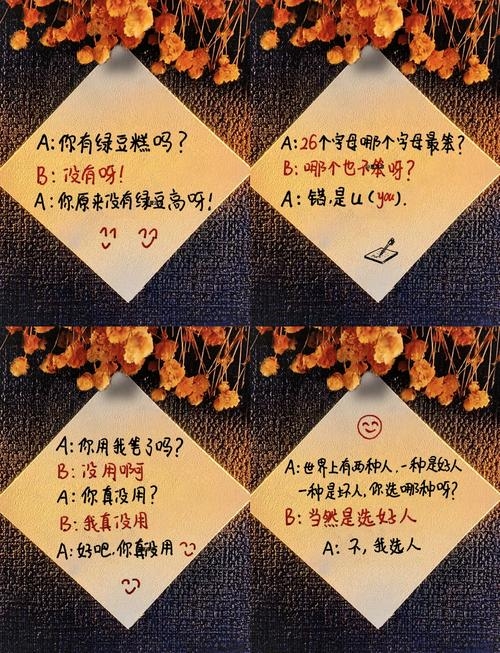 A:你有绿豆糕吗?
B:没有呀!
A:你原来没有绿豆高呀!
A:26个字母哪个字母最笨?
B:哪个也不笨呀?
A:错,是U(you).
A:你用我爸了吗?
B:没用啊
A:你真没用?
B:我真没用
A:好吧,你真没用
A:世界上有两种人,一种是好人
一种是坏人,你选哪种呀?
B:当然是选好人
A:不,我选人